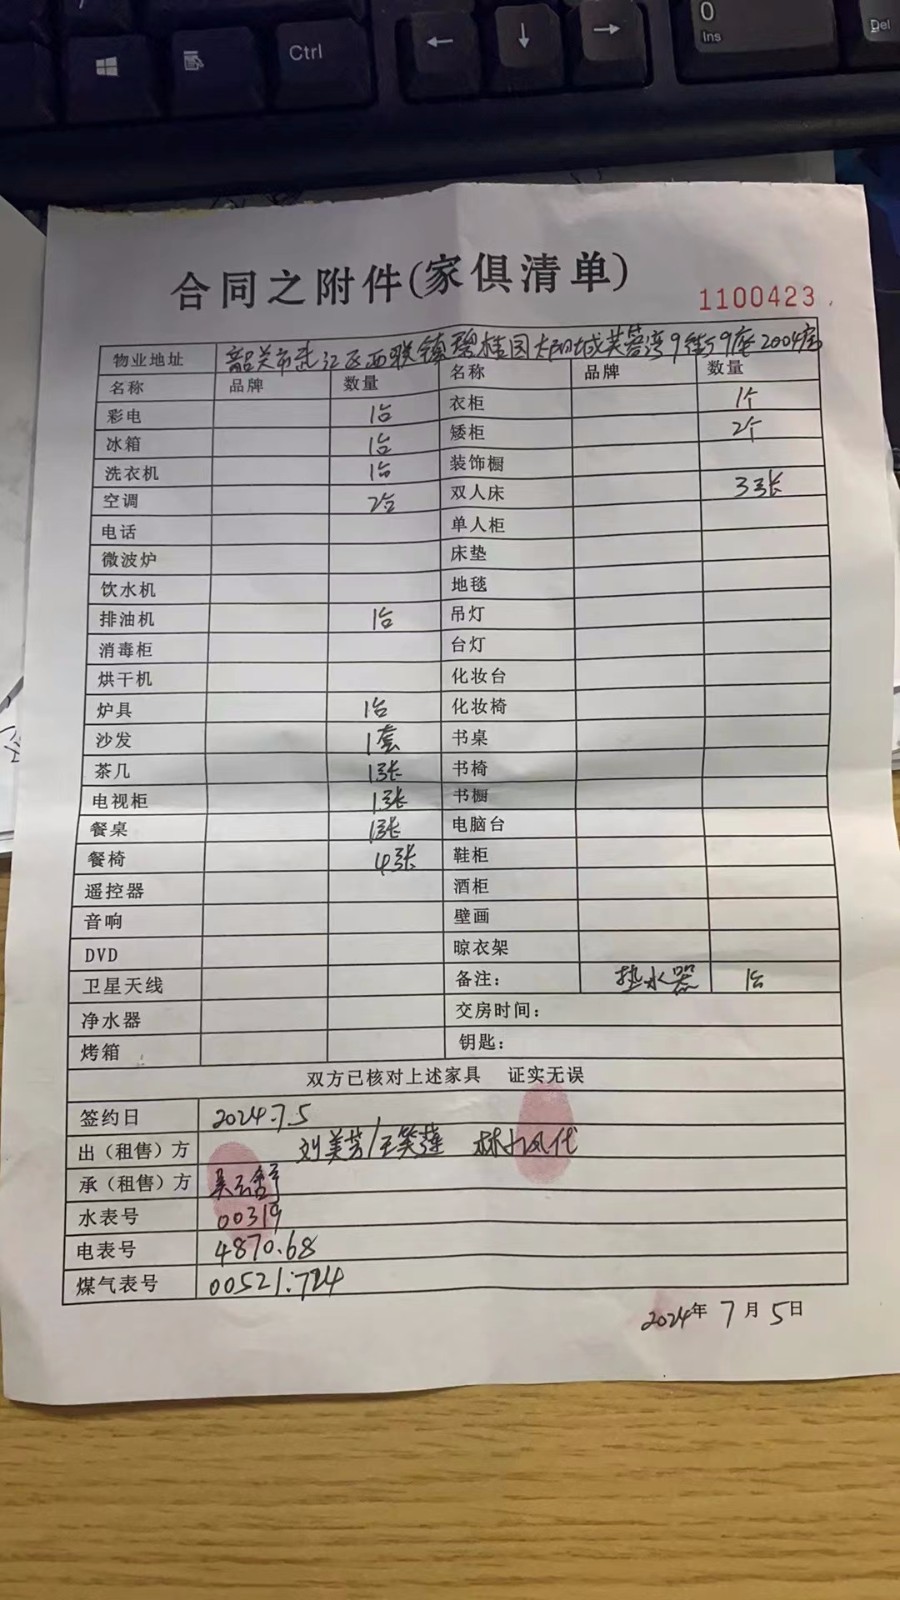 Ctrl
0
Ins
Del
合同之附件(家俱清单)
1100423
物业地址 韶关市武江区西联镇碧桂园太阳城芙蓉湾9街9座2004房
名称 品牌 数量 名称 品牌 数量
彩电 1台 衣柜 1个
冰箱 1台 矮柜 2个
洗衣机 1台 装饰橱
空调 2台 双人床 3张
电话 单人柜
微波炉 床垫
饮水机 地毯
排油机 1台 吊灯
消毒柜 台灯
烘干机 化妆台
炉具 1台 化妆椅
沙发 1套 书桌
茶几 1张 书椅
电视柜 1张 书橱
餐桌 1张 电脑台
餐椅 4张 鞋柜
遥控器 酒柜
音响 壁画
DVD 晾衣架
卫星天线 备注: 热水器 1台
净水器 交房时间:
烤箱 钥匙:
双方已核对上述家具 证实无误
签约日 2024.7.5
出（租售）方 刘美芳/王笑莲 代
承（租售）方
水表号 00319
电表号 4870.68
煤气表号 00521.724
2024年7月5日